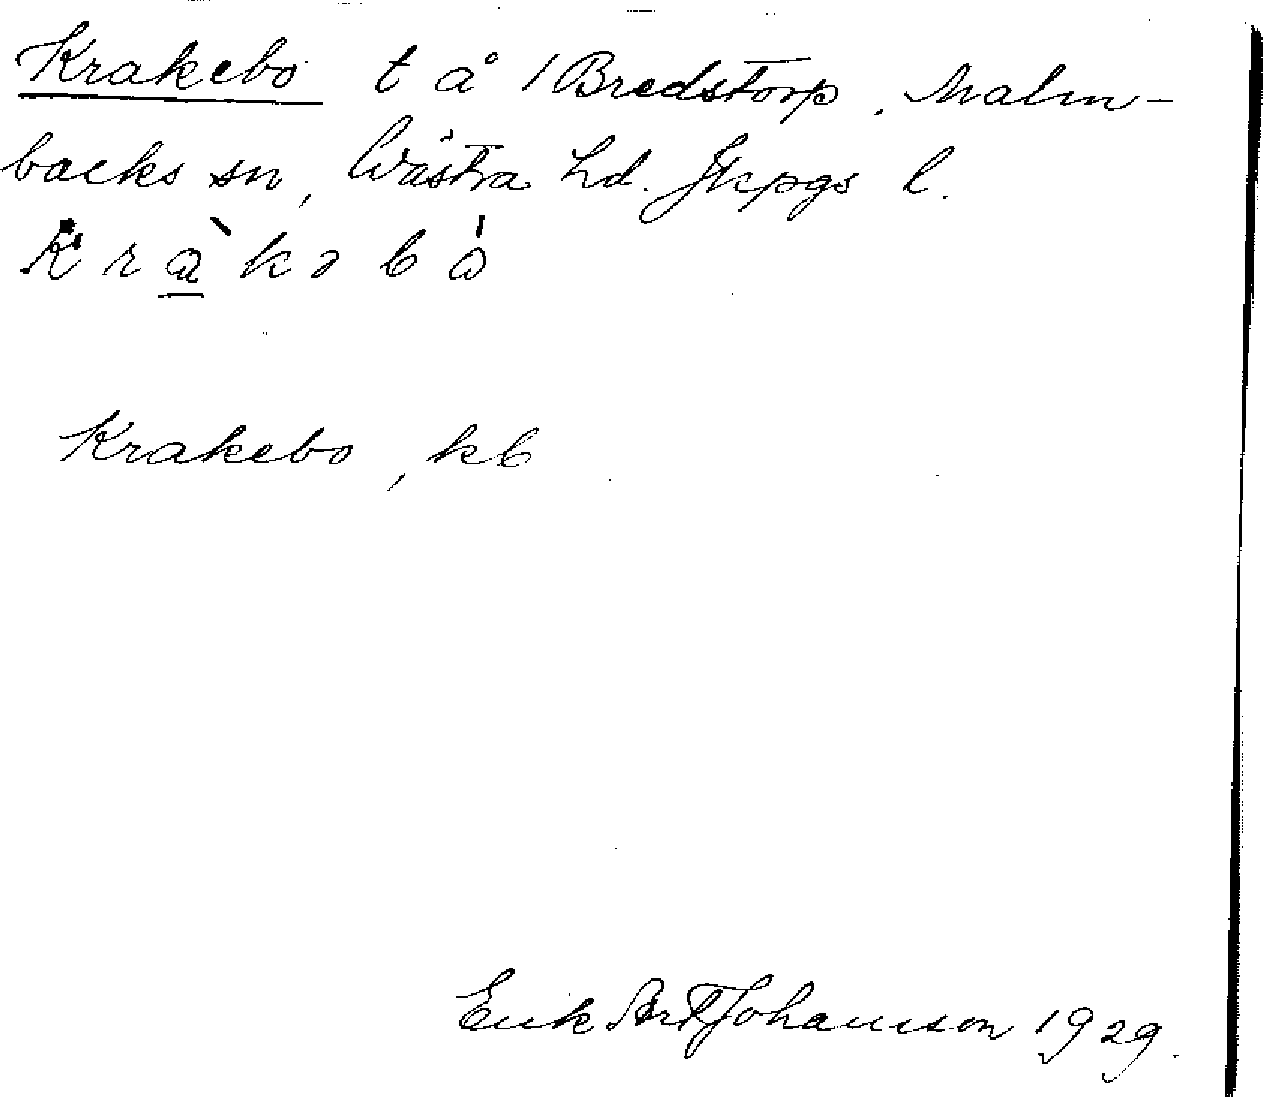 Krakebo t å 1 Bredstorp. Malm-
backs sn, Västra hd. Jkpgs l.
K r à k ə b ò
Krakebo, kb
Erik Art Johansson 1929.